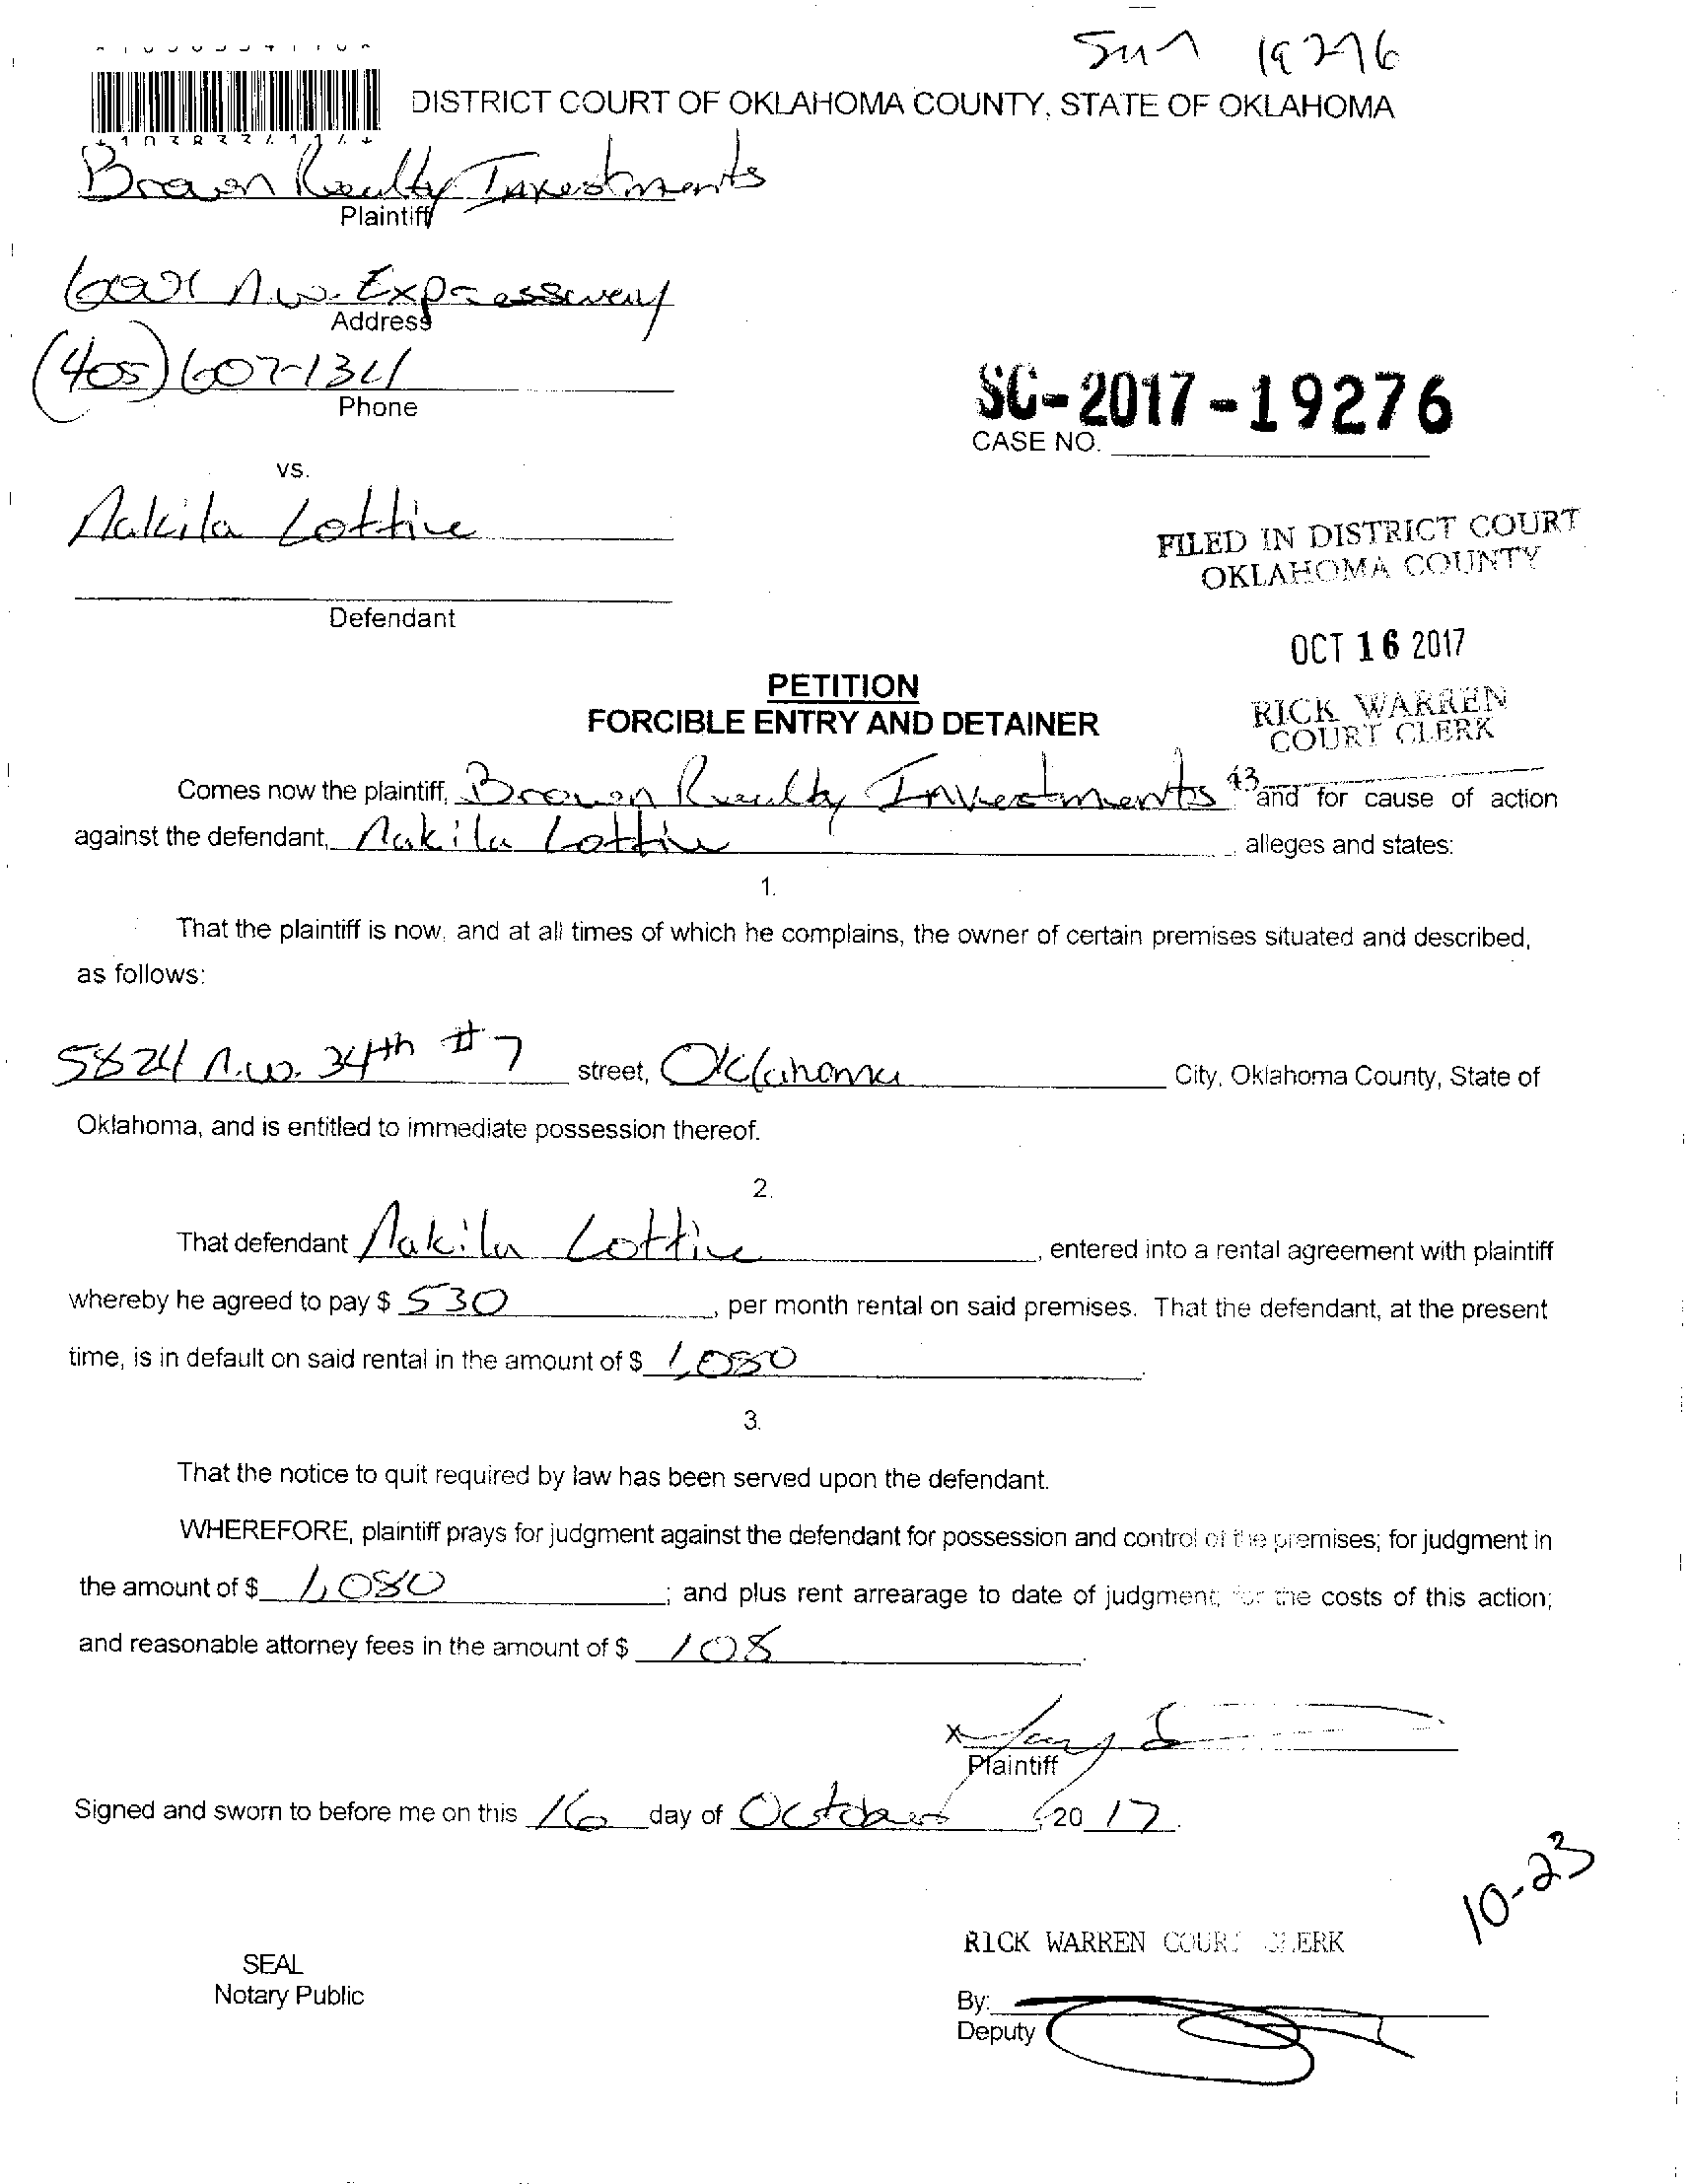 19276
DISTRICT COURT OF OKLAHOMA COUNTY, STATE OF OKLAHOMA
Brown Realty Investments
Plaintiff
N.W. Expressway
Address
(405) 607-1341
Phone
SC-2017-19276
CASE NO.
vs.
Nakila Lottive
FILED IN DISTRICT COURT
OKLAHOMA COUNTY
Defendant
OCT 16 2017
PETITION
FORCIBLE ENTRY AND DETAINER
RICK WARREN
COURT CLERK
43
Comes now the plaintiff, Brown Realty Investments and for cause of action
against the defendant, Nakila Lottive alleges and states:
1.
That the plaintiff is now, and at all times of which he complains, the owner of certain premises situated and described,
as follows:
5824 N.W. 34th #7 street, Oklahoma City, Oklahoma County, State of
Oklahoma, and is entitled to immediate possession thereof.
2.
That defendant Nakila Lottive, entered into a rental agreement with plaintiff
whereby he agreed to pay $ 530, per month rental on said premises. That the defendant, at the present
time, is in default on said rental in the amount of $ 1,080.
3.
That the notice to quit required by law has been served upon the defendant.
WHEREFORE, plaintiff prays for judgment against the defendant for possession and control of the premises; for judgment in
the amount of $ 1,080; and plus rent arrearage to date of judgment; for the costs of this action;
and reasonable attorney fees in the amount of $ 108.
X
Plaintiff
Signed and sworn to before me on this 16 day of October, 20 17.
10-23
RICK WARREN COURT CLERK
SEAL
Notary Public
By:
Deputy